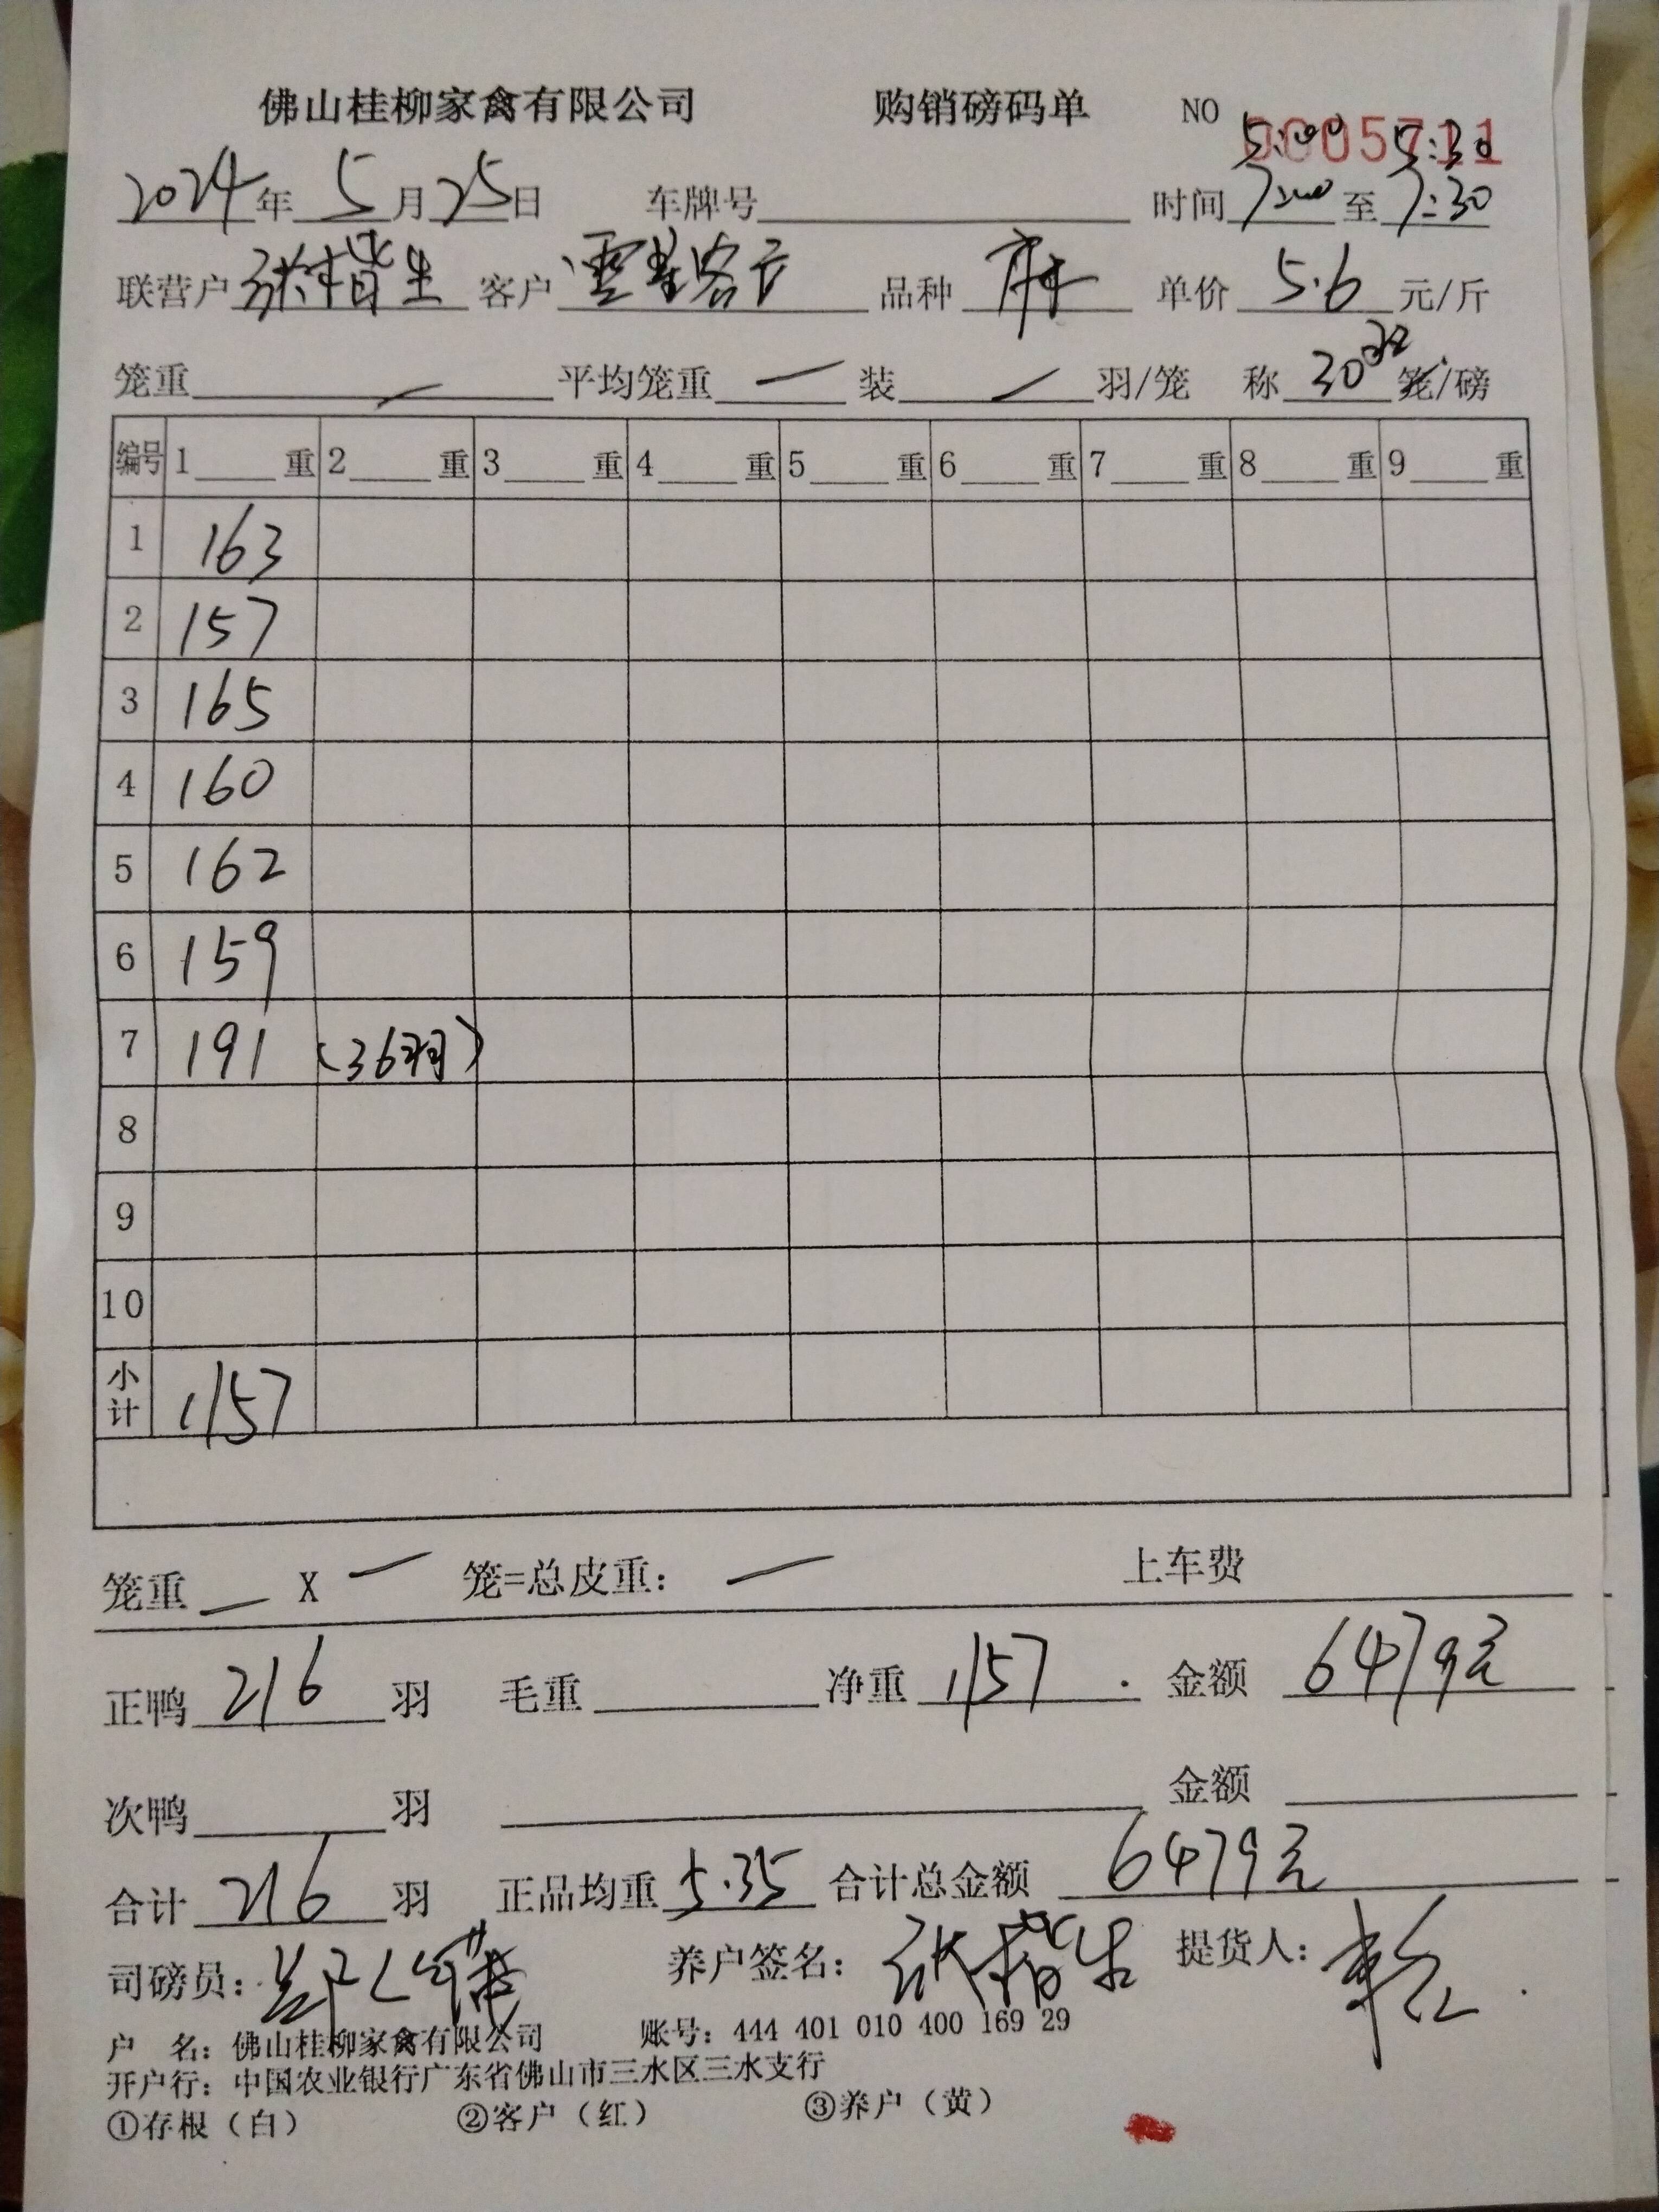 佛山桂柳家禽有限公司 购销磅码单 NO 0005711
5:00 5:30
2024年5月25日 车牌号 时间7:00至7:30
联营户 张楷生 客户 零售客户 品种 麻 单价 5.6 元/斤
笼重 — 平均笼重 — 装 — 羽/笼 称 30羽 笼/磅
编号 1 重 2 重 3 重 4 重 5 重 6 重 7 重 8 重 9 重
1 163
2 157
3 165
4 160
5 162
6 159
7 191 (36羽)
8
9
10
小计 1157
笼重 — X — 笼=总皮重: — 上车费
正鸭 216 羽 毛重 净重 1157. 金额 6479元
次鸭 羽 金额
合计 216 羽 正品均重 5.35 合计总金额 6479元
司磅员: 养户签名: 张楷生 提货人:
户 名: 佛山桂柳家禽有限公司 账号: 444 401 010 400 169 29
开户行: 中国农业银行广东省佛山市三水区三水支行
①存根（白） ②客户（红） ③养户（黄）